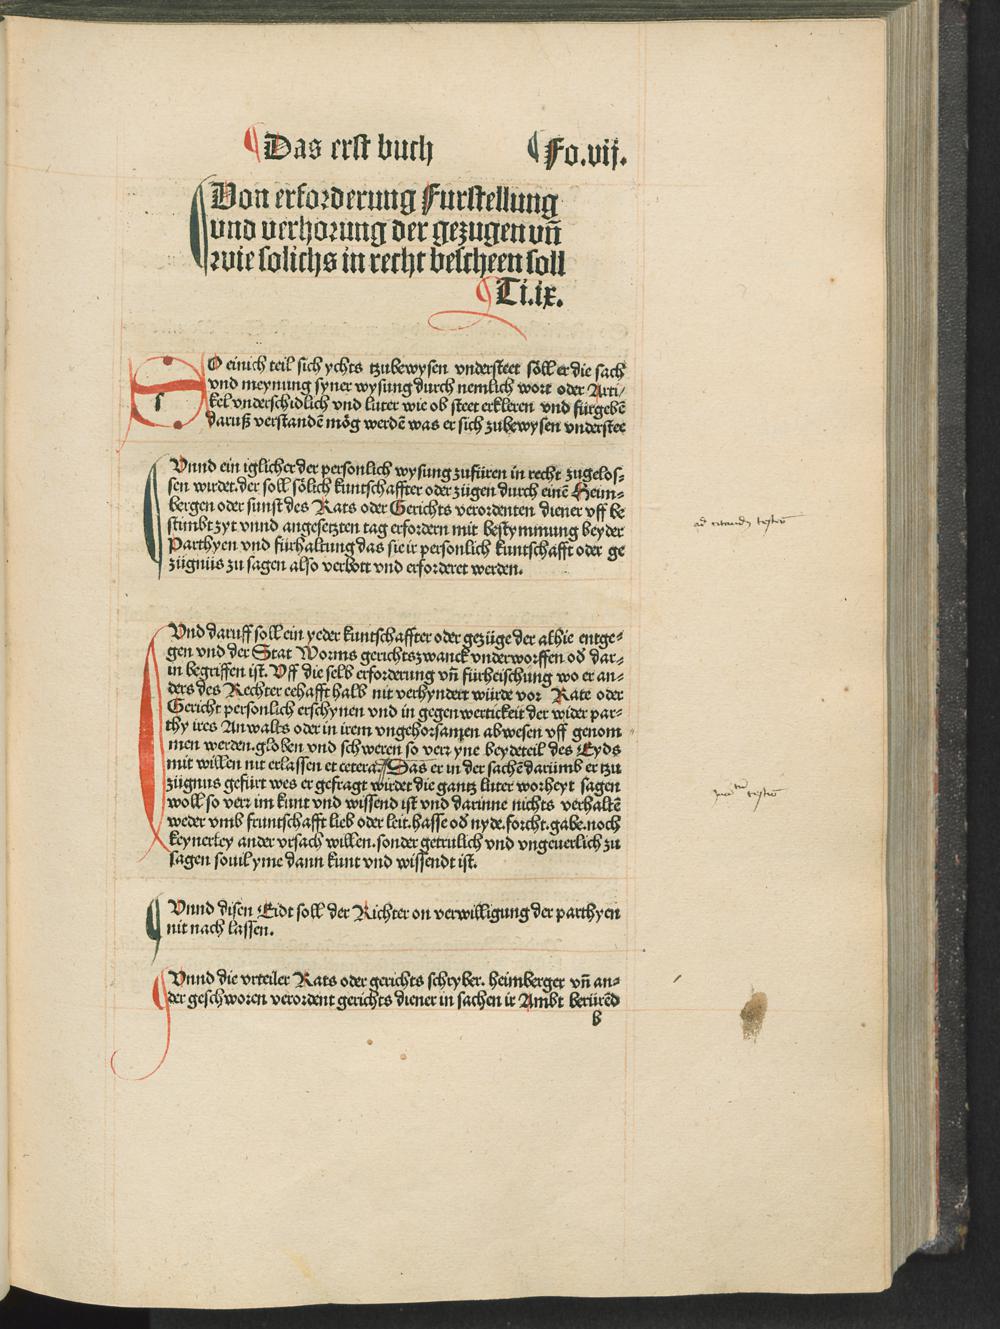 Das erst buch Fo.vij.
Von erforderung Furstellung
vnd verhorung der gezugen vñ
wie solichs in recht bescheen soll
Ti.ix.
SO einich teil sich ychts tzubewysen vndersteet söll er die sach
vnd meynung syner wysung durch nemlich wort oder Arti/
kel vnderschidlich vnd luter wie ob steet erkleren vnd fürgebē
daruß verstandē mög werdē was er sich zubewysen vnderstee
Vnnd ein iglicher der personlich wysung zufüren in recht zugelos-
sen wirdet. der soll sölich kuntschaffter oder zügen durch einē Heim-
bergen oder sunst des Rats oder Gerichts verordenten diener vff be
stimbt zyt vnnd angesetzten tag erfordern mit bestymmung beyder
Parthyen vnd fürhaltung das sie ir personlich kuntschafft oder ge
zügnüs zu sagen also verbott vnd erforderet werden.
ad citandū testes
Vnd daruff soll ein yeder kuntschaffter oder gezüge der alhie entge-
gen vnd der Stat Worms gerichtszwanck vnderworffen od dar-
in begriffen ist. Vff die selb erforderung vñ fürheischung wo er an-
ders des Rechter eehafft halb nit verhyndert würde vor Rate oder
Gericht personlich erschynen vnd in gegenwertickeit der wider par-
thy ires Anwalts oder in irem vngehorsamen abwesen vff genom
men werden. globen vnd schweren so verr yne beydeteil des Eyds
mit willen nit erlassen et cetera. Das er in der sachē darümb er tzu
zügnus gefürt wes er gefragt wirdet die gantz luter worheyt sagen
woll so verr im kunt vnd wissend ist vnd darinne nichts verhaltē
weder vmb fruntschafft lieb oder leit. hasse od nyde. forcht. gabe. noch
keynerley ander vrsach willen. sonder getrulich vnd vngeuerlich zu
sagen souil yme dann kunt vnd wissendt ist.
Vnnd disen Eidt soll der Richter on verwilligung der parthyen
nit nach lassen.
Vnnd die vrteiler Rats oder gerichts schryber. heimberger vñ an-
der geschworen verordent gerichts diener in sachen ir Ambt berürēd
b